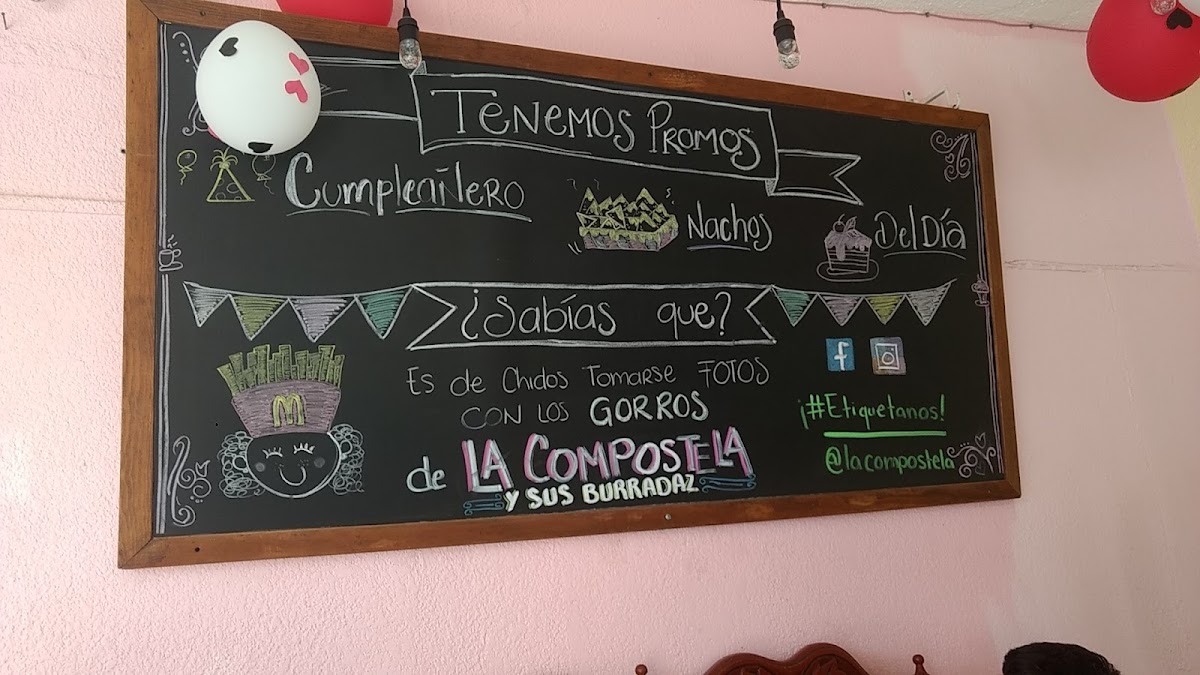 Tenemos Promos
Cumpleañero
Nachos
Del Día
¿Sabías que?
Es de Chidos Tomarse FOTOS
CON LOS GORROS
de LA COMPOSTELA
Y SUS BURRADAZ
f
¡#Etiquetanos!
@lacompostela
M